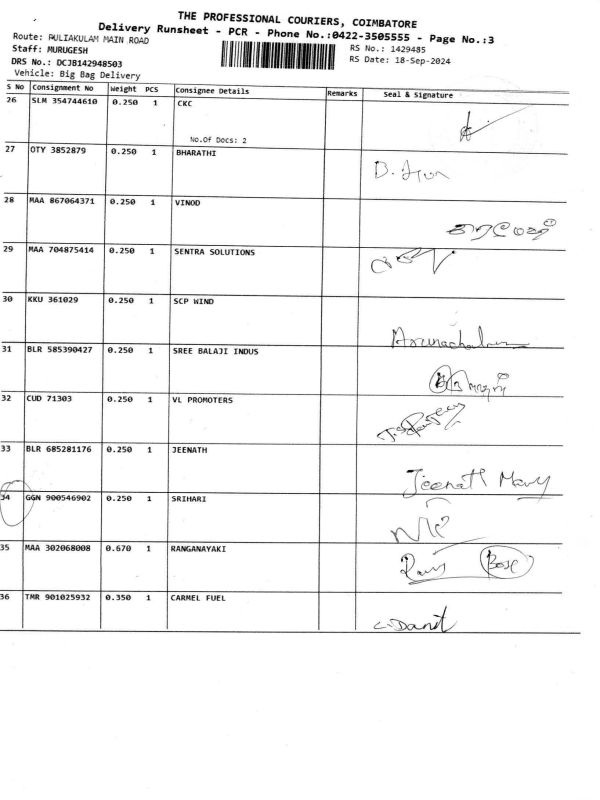 THE PROFESSIONAL COURIERS, COIMBATORE
Delivery Runsheet - PCR - Phone No.:0422-3505555 - Page No.:3
Route: PULIAKULAM MAIN ROAD
RS No.: 1429485
Staff: MURUGESH
RS Date: 18-Sep-2024
DRS No.: DCJB142948503
Vehicle: Big Bag Delivery
S No Consignment No Weight PCS Consignee Details Remarks Seal & Signature
26 SLM 354744610 0.250 1 CKC
No.Of Docs: 2
27 OTY 3852879 0.250 1 BHARATHI
28 MAA 867064371 0.250 1 VINOD
29 MAA 704875414 0.250 1 SENTRA SOLUTIONS
30 KKU 361029 0.250 1 SCP WIND
Arunachalam
31 BLR 585390427 0.250 1 SREE BALAJI INDUS
32 CUD 71303 0.250 1 VL PROMOTERS
33 BLR 685281176 0.250 1 JEENATH
Jeenath Mary
34 GGN 900546902 0.250 1 SRIHARI
35 MAA 302068008 0.670 1 RANGANAYAKI
36 TMR 901025932 0.350 1 CARMEL FUEL